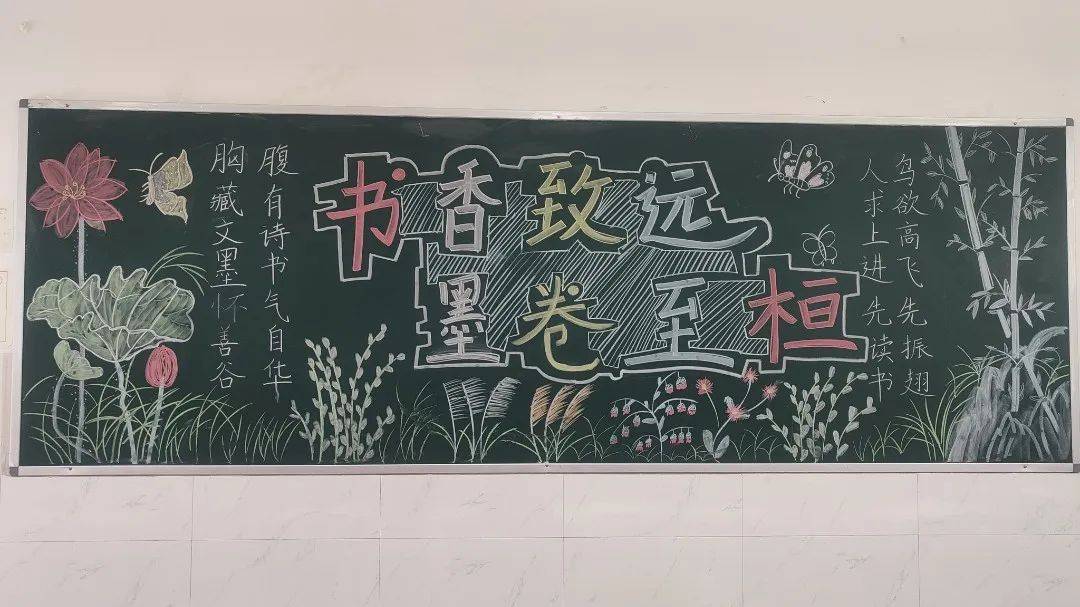 胸藏文墨怀善谷
腹有诗书气自华
书香致远
墨卷至桓
鸟欲高飞先振翅
人求上进先读书